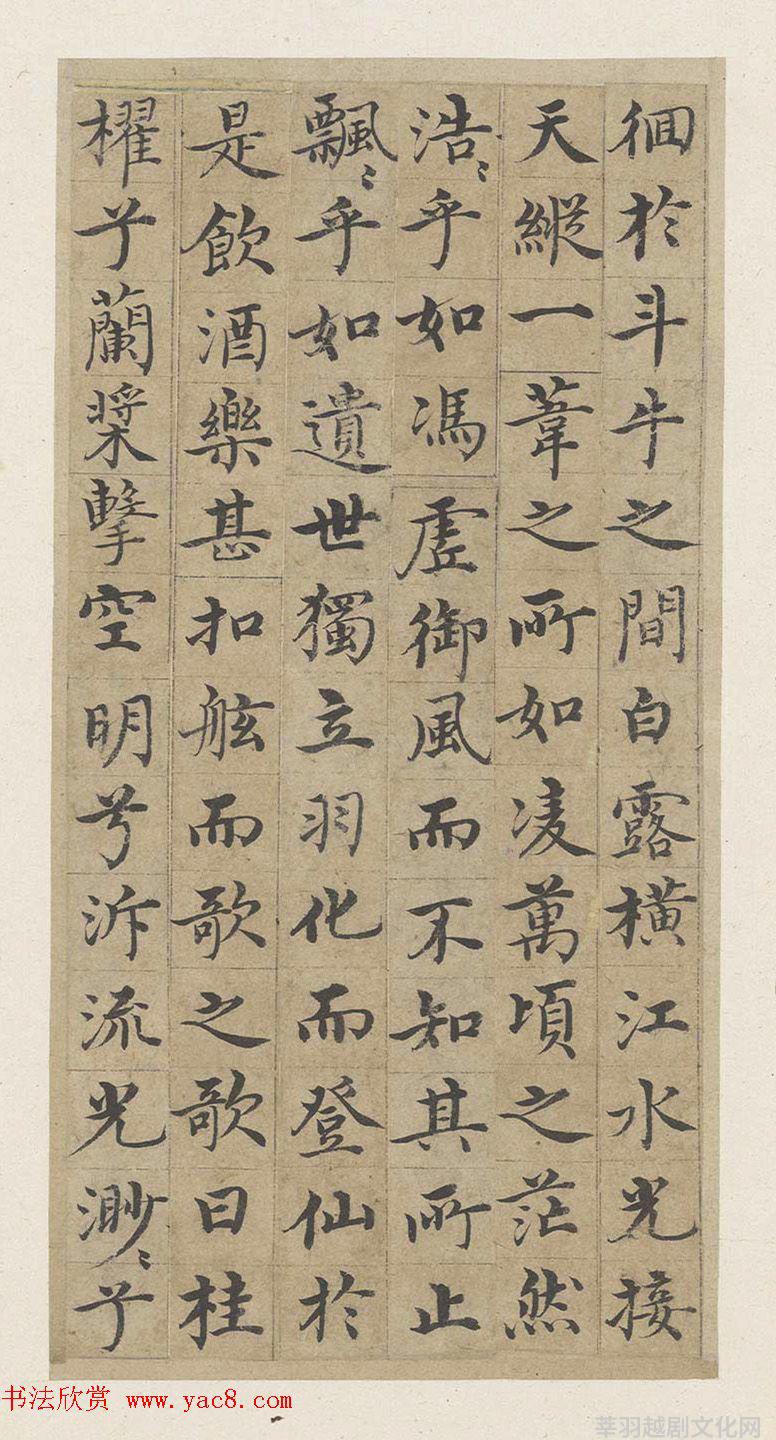 徊於斗牛之間白露橫江水光接
天縱一葦之所如凌萬頃之茫然
浩〻乎如馮虛御風而不知其所止
飄〻乎如遺世獨立羽化而登仙於
是飲酒樂甚扣舷而歌之歌曰桂
櫂兮蘭槳擊空明兮泝流光渺〻兮
书法欣赏 www.yac8.com
莘羽越剧文化网